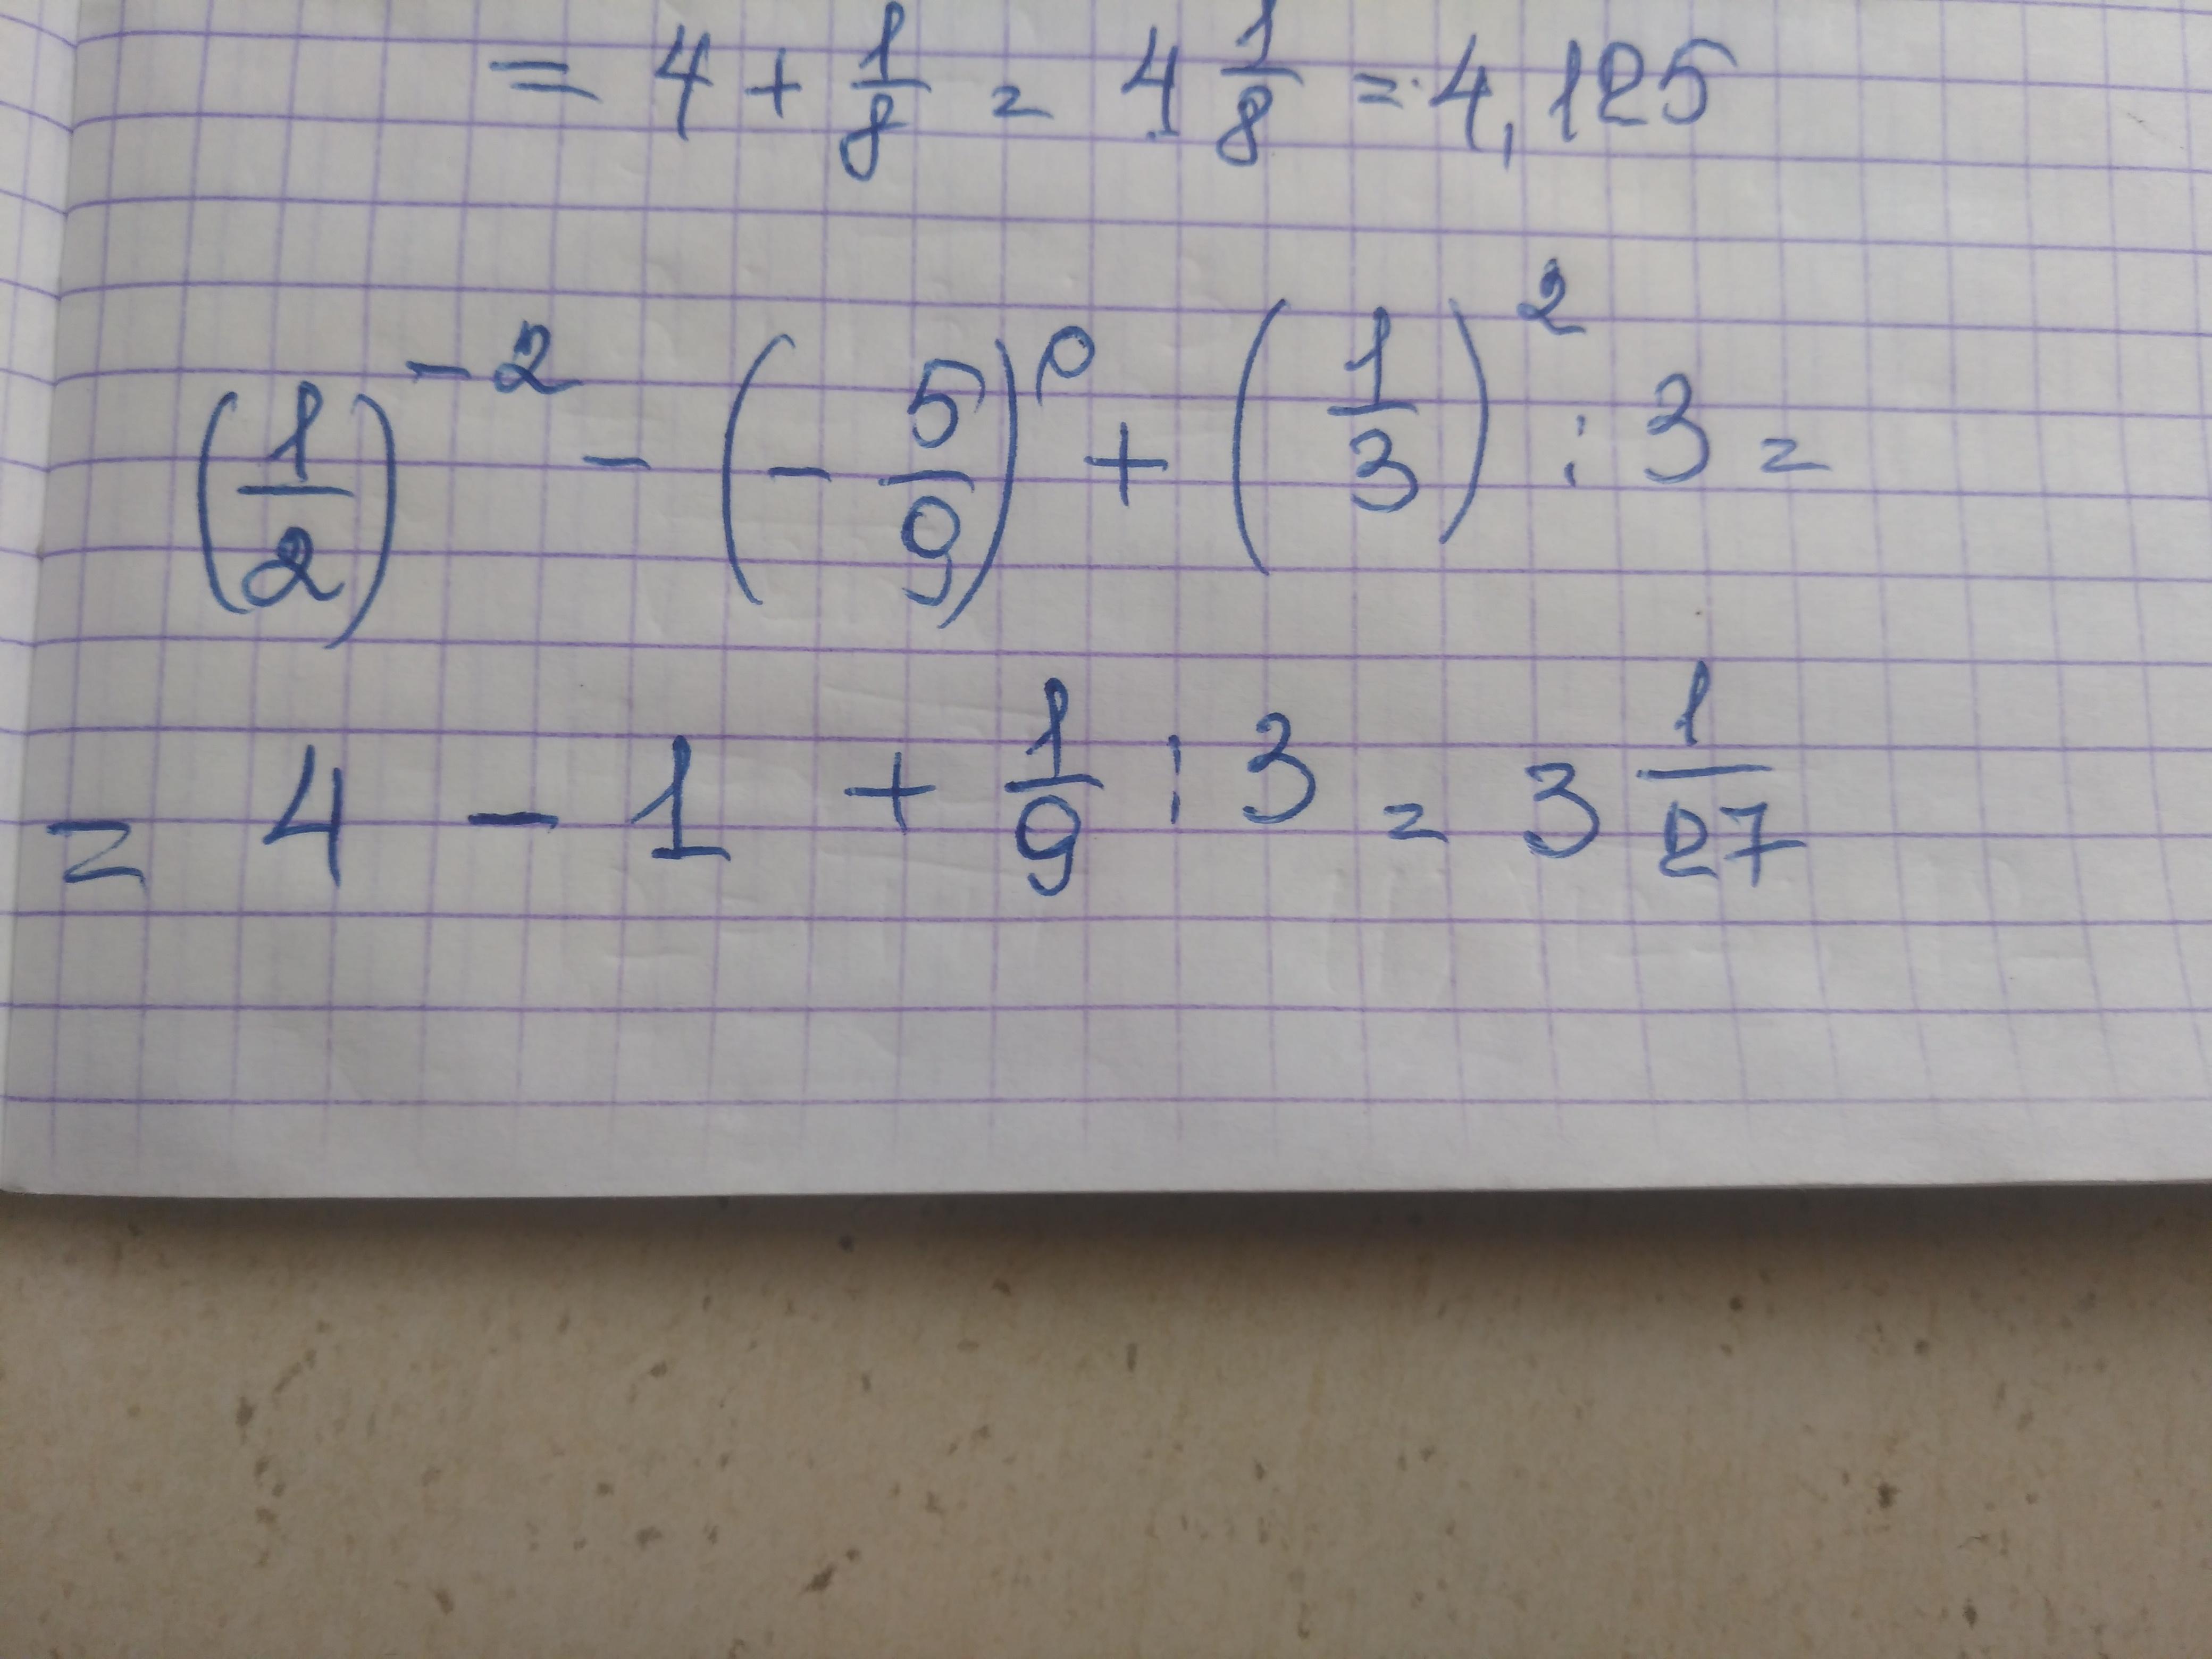 = 4 + 1/8 = 4 1/8 = 4,125
(1/2)^-2 - (-5/9)^0 + (1/3)^2 : 3 =
= 4 - 1 + 1/9 : 3 = 3 1/27